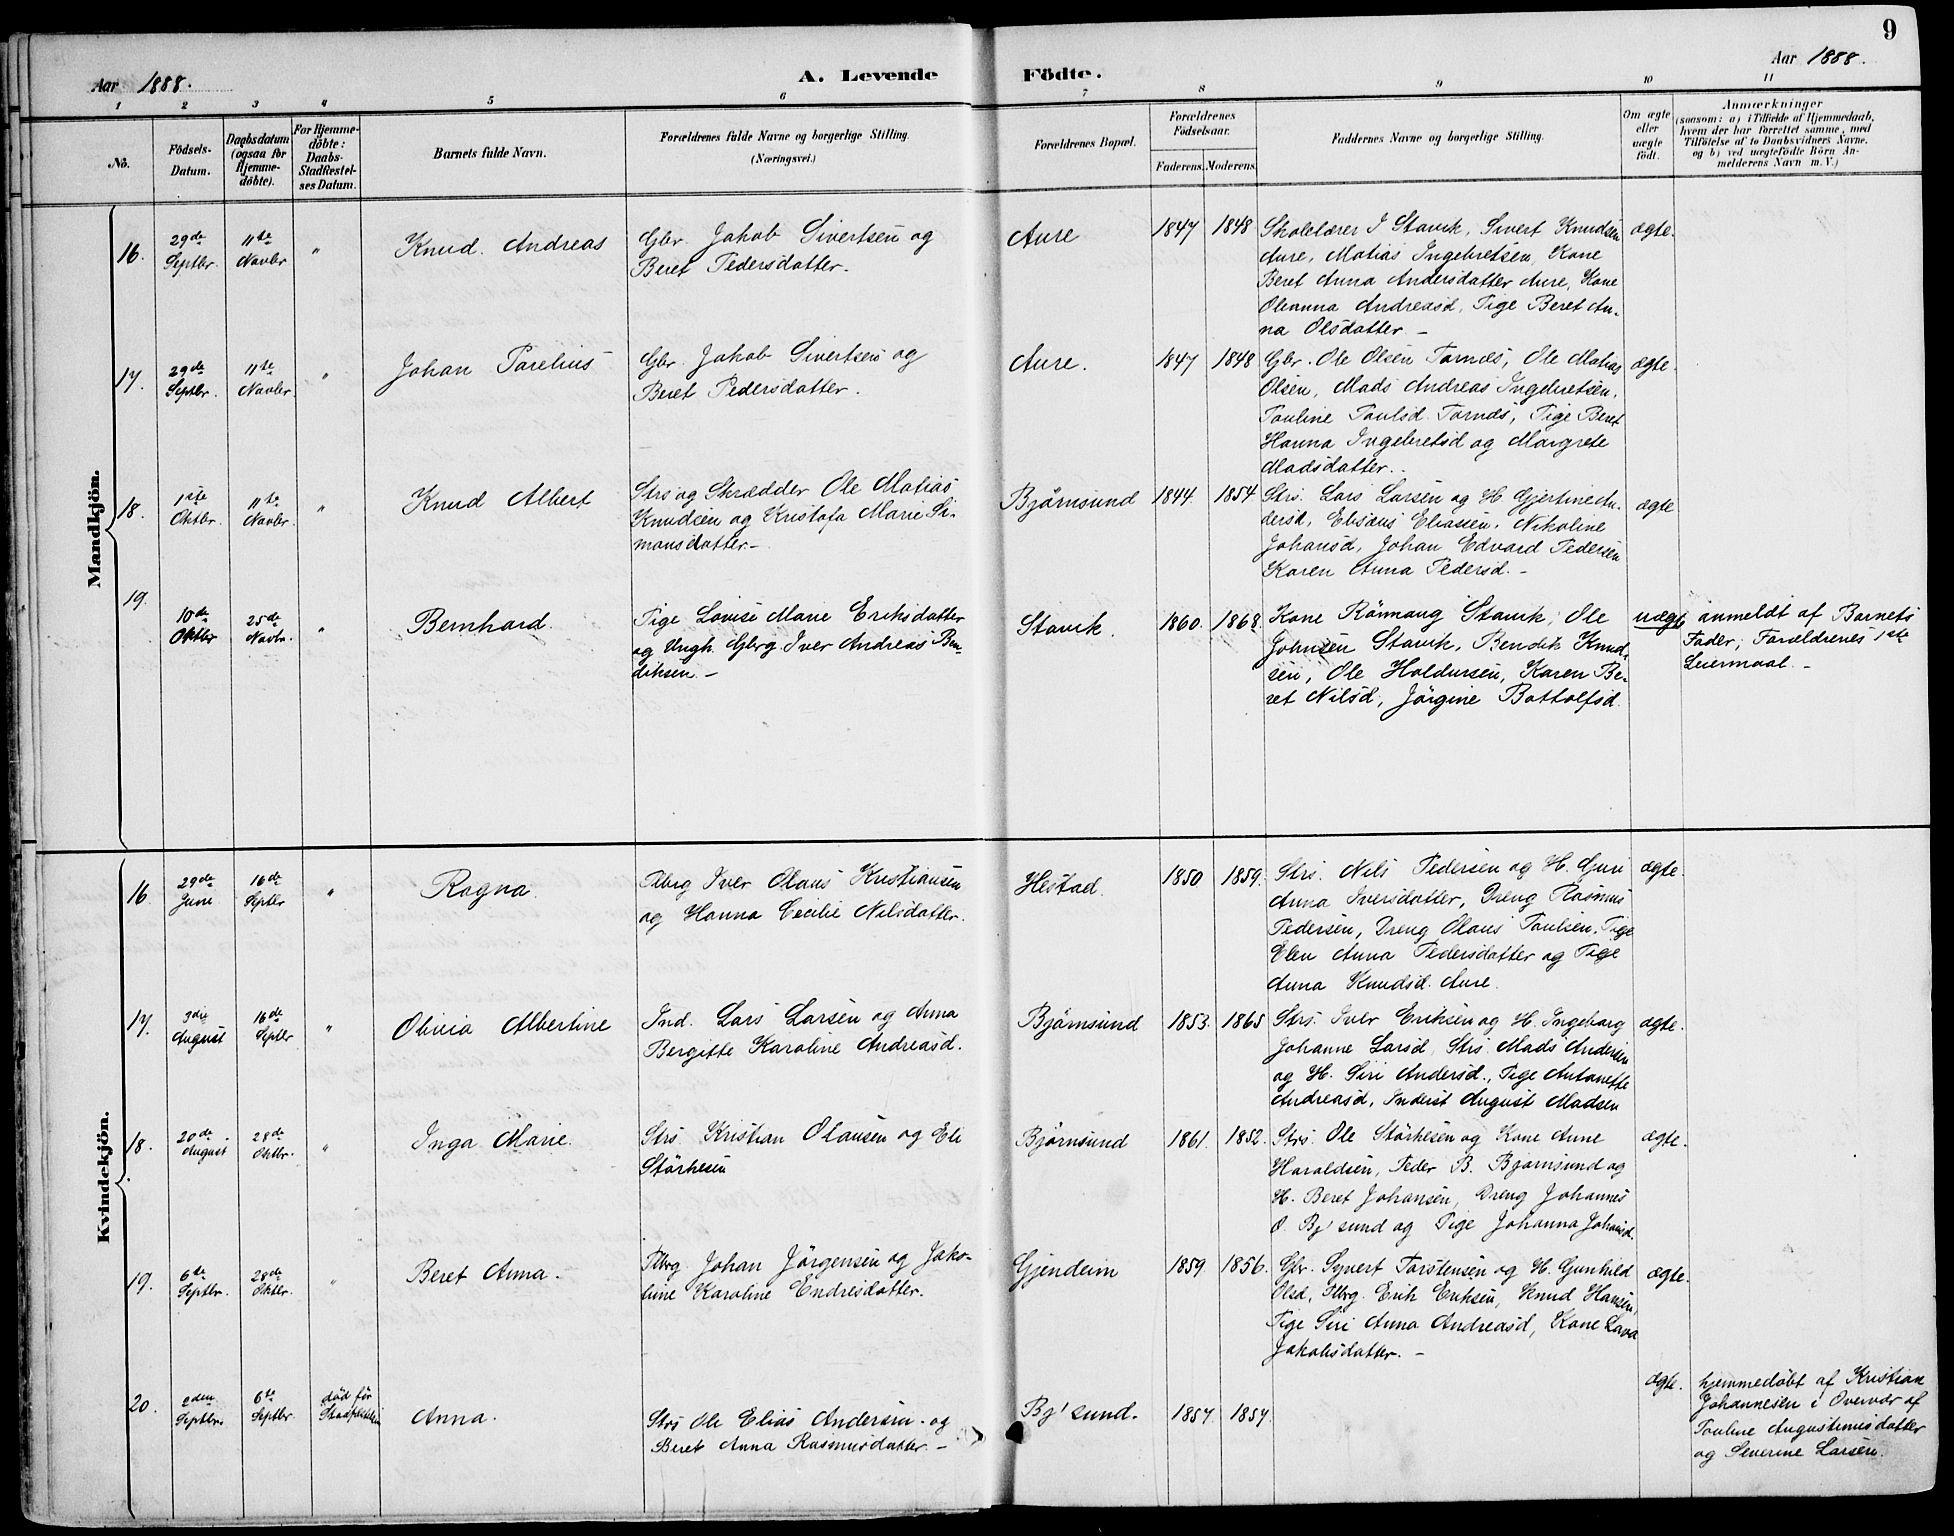 9
Aar 1888.
A. Levende Födte.
Aar 1888.
1 2 3 4 5 6 7 8 9 10 11
No.
Födsels-
Datum.
Daabsdatum
(ogsaa for
Hjemme-
döbte).
For Hjemme-
döbte:
Daabs-
Stadfestel-
ses Datum.
Barnets fulde Navn.
Forældrenes fulde Navne og borgerlige Stilling.
(Næringsvei.)
Forældrenes Bopæl.
Forældrenes
Födselsaar.
Faderens. Moderens.
Faddernes Navne og borgerlige Stilling.
Om ægte
eller
uægte
födt.
Anmærkninger
(saasom: a) i Tilfælde af Hjemmedaab,
hvem der har forrettet samme, med
Tilföielse af to Daabsvidners Navne,
og b) ved uægtefödte Börn An-
melderens Navn m. V.)
Mandkjön.
16.
29de
Septbr.
11te
Novbr
"
Knud Andreas
Gbr. Jakob Sivertsen og
Beret Pedersdatter.
Aure
1847 1848
Skolelærer J Stavik, Sivert Knudsen
Aure, Matias Ingebretsen, Kone
Beret Anna Andersdatter Aure, Kone
Oleanna Andreasd, Pige Beret An-
na Olsdatter. -
ægte.
17.
29de
Septbr.
11te
Novbr.
"
Johan Parelius
Gbr. Jakob Sivertsen og
Beret Pedersdatter.
Aure.
1847 1848
Gbr. Ole Olsen Tornes, Ole Matias
Olsen, Mads Andreas Ingebretsen,
Pauline Paulsd. Tornes, Pige Beret
Hanna Ingebretsd og Margrete
Madsdatter..
ægte.
18.
1ste
Oktbr.
11te
Novbr.
"
Knud Albert
Strs og Skrædder Ole Matias
Knudsen og Kristofa Marie Si-
monsdatter.-
Bjørnsund
1844. 1854
Strs. Lars Larsen og H. Gjertine An-
dersd, Elisæus Eliassen, Nikoline
Johansd, Johan Edvard Pedersen
Karen Anna Pedersd. -
ægte
19.
10de
Oktbr
25de
Novbr.
"
Bernhard.
Pige Lovise Marie Eriksdatter
og Ungk. Gbrg. Iver Andreas Ben-
diksen. -
Stavik.
1860. 1868.
Kone Rönnaug Stavik, Ole
Johnsen Stavik, Bendik Knud-
sen, Ole Haldorsen, Karen Be-
ret Nilsd, Jörgine Bottolfsd.
uægte
anmeldt af Barnets
Fader; Forældrenes 1ste
Leiermaal. -
Kvindekjön.
16
29de
Juni
16de
Septbr
"
Ragna.
Plbrg Iver Olaus Kristiansen
og Hanna Cecilie Nilsdatter.
Hestad.
1850 1859.
Strs. Nils Pedersen og H. Guri
Anna Iversdatter, Dreng Rasmus
Pedersen, Dreng Olaus Paulsen, Pige
Elen Anna Pedersdatter og Pige
Anna Knudsd. Aure.
ægte.
17.
3die
August
16de
Septbr
"
Olivia Albertine
Ind. Lars Larsen og Anna
Bergitte Karoline Andreasd.
Bjørnsund
1853. 1865
Strs. Iver Eriksen og H. Ingeborg
Johanne Larsd, Strs. Mads Andersen
og H. Siri Andersd., Pige Antonette
Andreasd, Inderst August Madsen
ægte.
18.
20de
August
28de
Oktbr.
"
Inga Marie.
Strs. Kristian Olausen og Eli
Störkesen
Bjørnsund
1861. 1852.
Strs. Ole Störkesen og Kone Anne
Haraldsen, Peder B. Bjørnsund og
H. Beret Johansen, Dreng Johannes
O. Bj'sund og Pige Johanna Johansd.
ægte.
19.
6te
Septbr.
28de
Oktbr.
"
Beret Anna.
Plbrg. Johan Jörgensen og Jako-
bine Karoline Endresdatter.
Gjendem
1859 1856.
Gbr. Syvert Torstensen og H. Gunhild
Olsd, Plbrg. Erik Eriksen, Knud Hansen,
Pige Siri Anna Andreasd, Kone Lava
Jakobsdatter. -
ægte.
20.
2den
Septbr.
6te
Septbr.
død før
Stadfæstelsen
Anna.
Strs Ole Elias Andersen og
Beret Anna Rasmusdatter. -
Bj'sund.
1857. 1857.
ægte.
hjemmedøbt af Kristian
Johannesen i Overvær af
Pauline Augustinusdatter
og Severine Larsen.